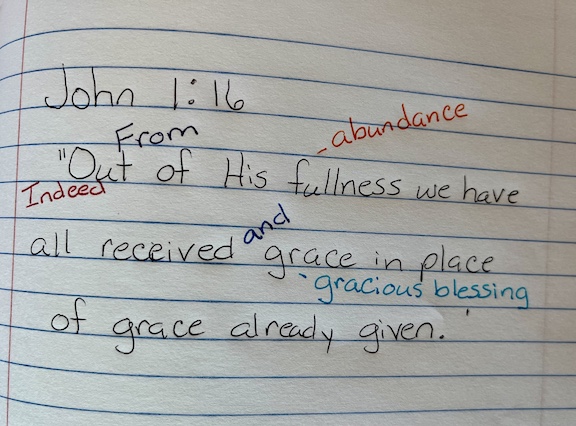 John 1:16
From
abundance
"Out of His fullness we have
Indeed
and
all received grace in place
gracious blessing
of grace already given.